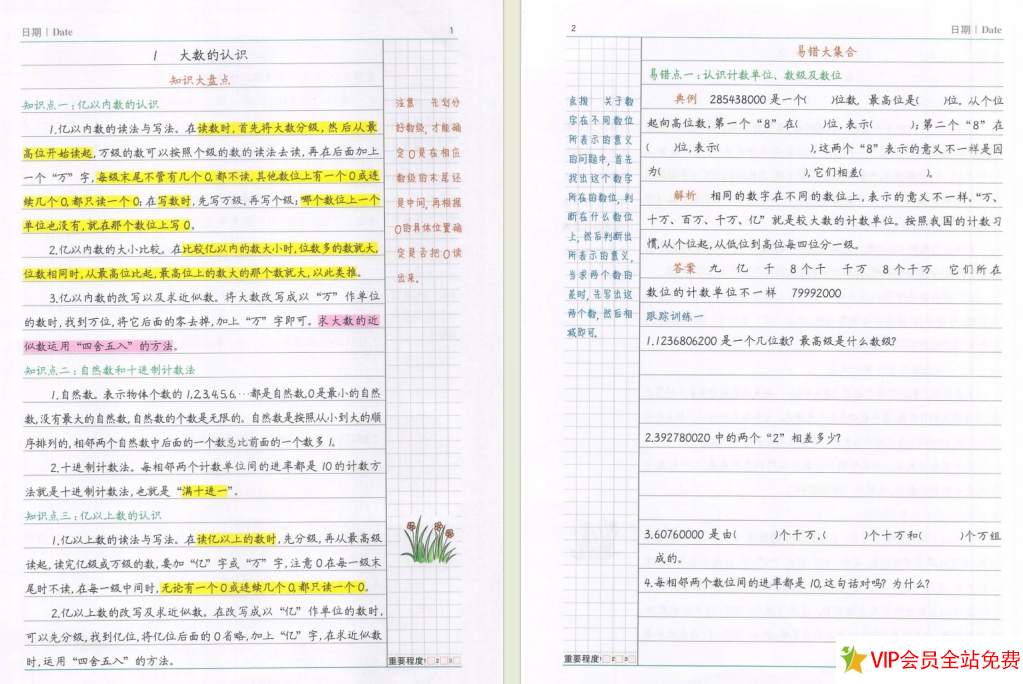 日期 | Date
1
1 大数的认识
知识大盘点
知识点一：亿以内数的认识
1.亿以内数的读法与写法。在读数时，首先将大数分级，然后从最
高位开始读起，万级的数可以按照个级的数的读法去读，再在后面加上
一个“万”字，每级末尾不管有几个0，都不读，其他数位上有一个0或连
续几个0，都只读一个0；在写数时，先写万级，再写个级；哪个数位上一个
单位也没有，就在那个数位上写0。
2.亿以内数的大小比较。在比较亿以内的数大小时，位数多的数就大，
位数相同时，从最高位比起，最高位上的数大的那个数就大，以此类推。
3.亿以内数的改写以及求近似数。将大数改写成以“万”作单位
的数时，找到万位，将它后面的零去掉，加上“万”字即可。求大数的近
似数运用“四舍五入”的方法。
知识点二：自然数和十进制计数法
1.自然数。表示物体个数的1,2,3,4,5,6,…都是自然数，0是最小的自然
数，没有最大的自然数，自然数的个数是无限的。自然数是按照从小到大的顺
序排列的，相邻两个自然数中后面的一个数总比前面的一个数多1。
2.十进制计数法。每相邻两个计数单位间的进率都是10的计数方
法就是十进制计数法，也就是“满十进一”。
知识点三：亿以上数的认识
1.亿以上数的读法与写法。在读亿以上的数时，先分级，再从最高级
读起，读完亿级或万级的数，要加“亿”字或“万”字，注意0在每一级末
尾时不读，在每一级中间时，无论有一个0或连续几个0，都只读一个0。
2.亿以上数的改写及求近似数。在改写成以“亿”作单位的数时，
可以先分级，找到亿位，将亿位后面的0省略，加上“亿”字，在求近似数
时，运用“四舍五入”的方法。
注意 先划分
好数级，才能确
定0是在相应
数级的末尾还
是中间，再根据
0的具体位置确
定是否把0读
出来。
重要程度 1 2 3
2
日期 | Date
点拨 关于数
字在不同数位
所表示的意义
的问题中，首先
找出这个数字
所在的数位，判
断在什么数位
上，然后判断出
所表示的意义，
当求两个数的
差时，先写出这
两个数，然后相
减即可。
易错大集合
易错点一：认识计数单位、数级及数位
典例 285438000是一个( )位数，最高位是( )位。从个位
起向高位数，第一个“8”在( )位，表示( )；第二个“8”在
( )位，表示( )，这两个“8”表示的意义不一样是因
为( )，它们相差( )。
解析 相同的数字在不同的数位上，表示的意义不一样。“万、
十万、百万、千万、亿”就是较大数的计数单位。按照我国的计数习
惯，从个位起，从低位到高位每四位分一级。
答案 九 亿 千 8个千 千万 8个千万 它们所在
数位的计数单位不一样 79992000
跟踪训练一
1.1236806200是一个几位数？最高级是什么数级？
2.392780020中的两个“2”相差多少？
3.60760000是由( )个千万，( )个十万和( )个万组
成的。
4.每相邻两个数位间的进率都是10，这句话对吗？为什么？
重要程度 1 2 3
VIP会员全站免费